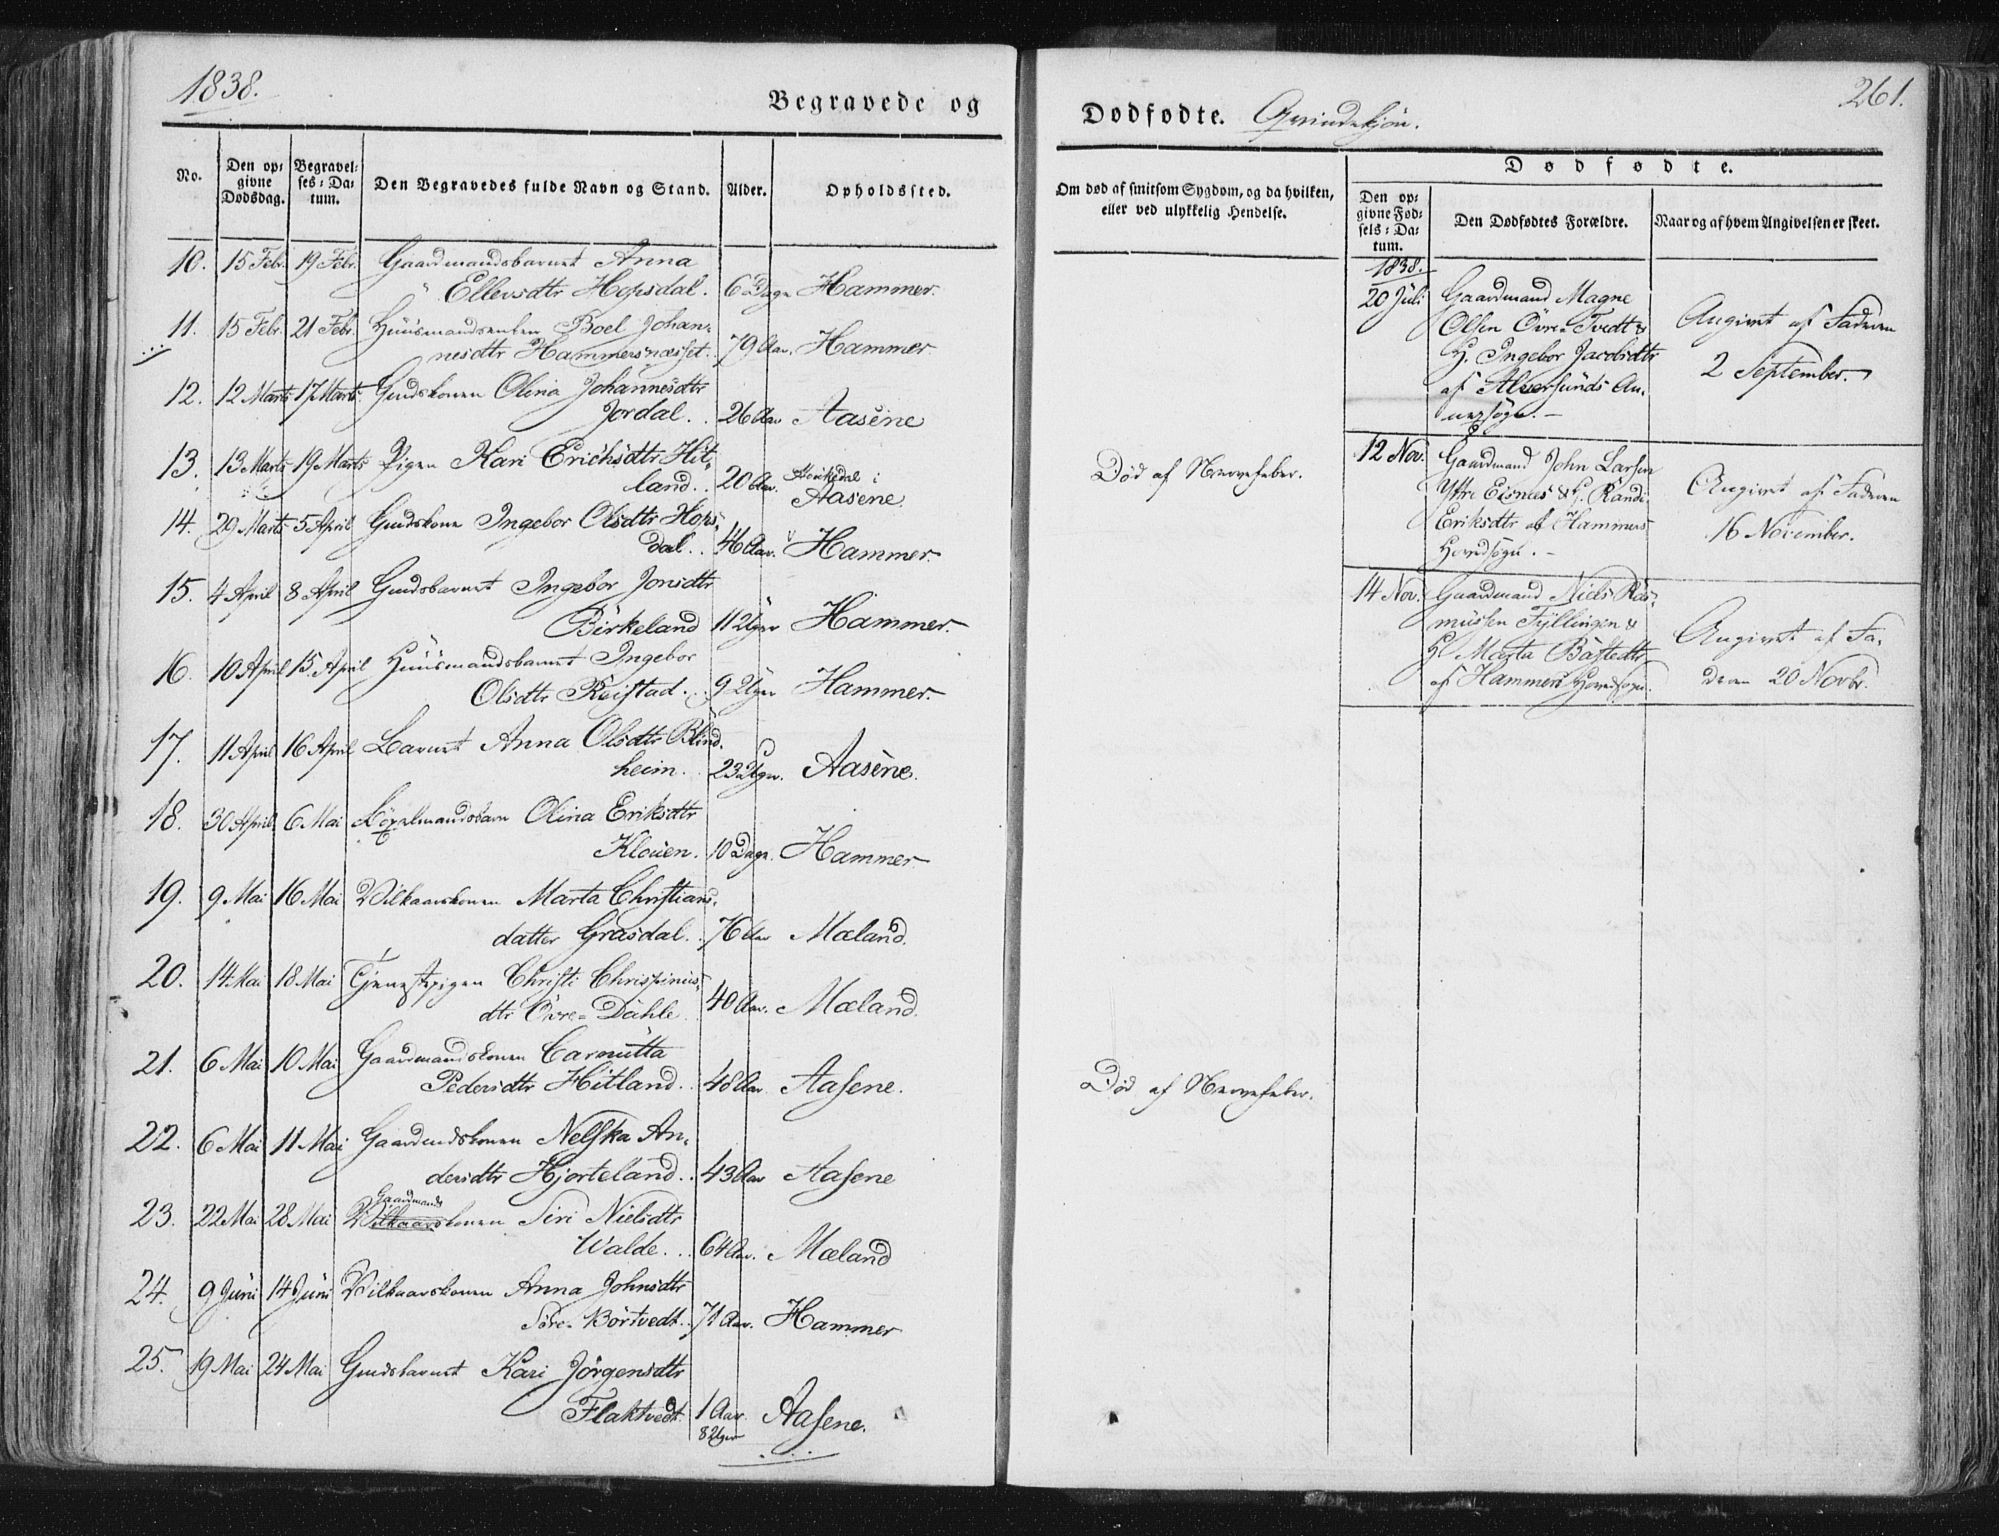 1838.
Begravede og
No.
Den opgivne Dødsdag.
Begravelses-Datum.
Den Begravedes fulde Navn og Stand.
Alder.
Opholdssted.
10. 15 Febr. 19 Febr. Gaardmandsbarnet Anna
Ellevsdtr Hopsdal. 6 Dage Hammer.
11. 15 Febr. 21 Febr. Huusmandsenken Boel Johan-
nesdtr Hammersnæsset. 79 Aar. Hammer.
12. 12 Marts 17 Marts Gmdskonen Olina Johannesdtr
Jordal. 26 Aar Aasene
13. 13 Marts 19 Marts Pigen Kari Erichsdtr Hit-
land. 20 Aar. Houkedal i
Aasene.
14. 29 Marts 5 April Gmdskone Ingebor Olsdtr Hops-
dal. 46 Aar. Hammer.
15. 4 April 8 April Gmdsbarnet Ingebor Jonsdtr
Birkeland 11 Uger Hammer.
16. 10 April 15. April Huusmandsbarnet Ingebor
Olsdtr Reistad. 9 Uger Hammer.
17. 11 April 16 April Barnet Anna Olsdtr Blind-
heim. 23 Uger. Aasene.
18. 30 April 6 Mai Löxelmandsbarn Olina Eriksdtr
Klouen. 10 Dage. Hammer
19. 9 Mai 16 Mai Vilkaarskonen Marta Christians-
datter Grasdal. 76 Aar Mæland.
20. 14 Mai 18 Mai Tjenestpigen Christi Chrispinus-
dtr Övre-Dahle. 40 Aar. Mæland.
21. 6 Mai 10 Mai Gaardmandskonen Carmitta
Pedersdtr Hitland. 48 Aar Aasene.
22. 6 Mai 11 Mai Gaardmdskonen Nelska An-
dersdtr Hjorteland. 43 Aar Aasene
Gaardmands
23. 22 Mai 28 Mai Vilkaarskonen Siri Nielsdtr
Walde. 64 Aar. Mæland
24. 9 Juni 14 Juni Vilkaarskonen Anna Johnsdtr
Söre-Börtvedt. 71 Aar. Hammer
25. 19 Mai 24 Mai Gmdsbarnet Kari Jörgensdtr
Flaktvedt. 1 Aar Aasene.
8 Uger
261.
Dødfødte. Qvindekjön.
Om død af smitsom Sygdom, og da hvilken,
eller ved ulykkelig Hendelse.
Dødfødte.
Den opgivne Fødsels-Datum.
Den Dødfødtes Forældre.
Naar og af hvem Angivelsen er skeet.
Död af Nervefeber.
Död af Nervefeber.
1838.
20 Juli Gaardmand Magne
Olsen Övre-Tvedt &
H. Ingebor Jacobsdtr
af Alversunds An-
nexsogn.-
Angivet af Faderen
2 September.
12 Nov. Gaardmand John Larsen
Yttre Eisnes & H. Randi
Eriksdtr af Hammers
Hovedsogn.-
Angivet af Faderen
16 November.
14 Nov. Gaardmand Niels Ras-
mussen Fyllingen &
H. Marta Bastedtr
af Hammers Hovedsogn.
Angivet af Fa-
deren 20 Novbr.